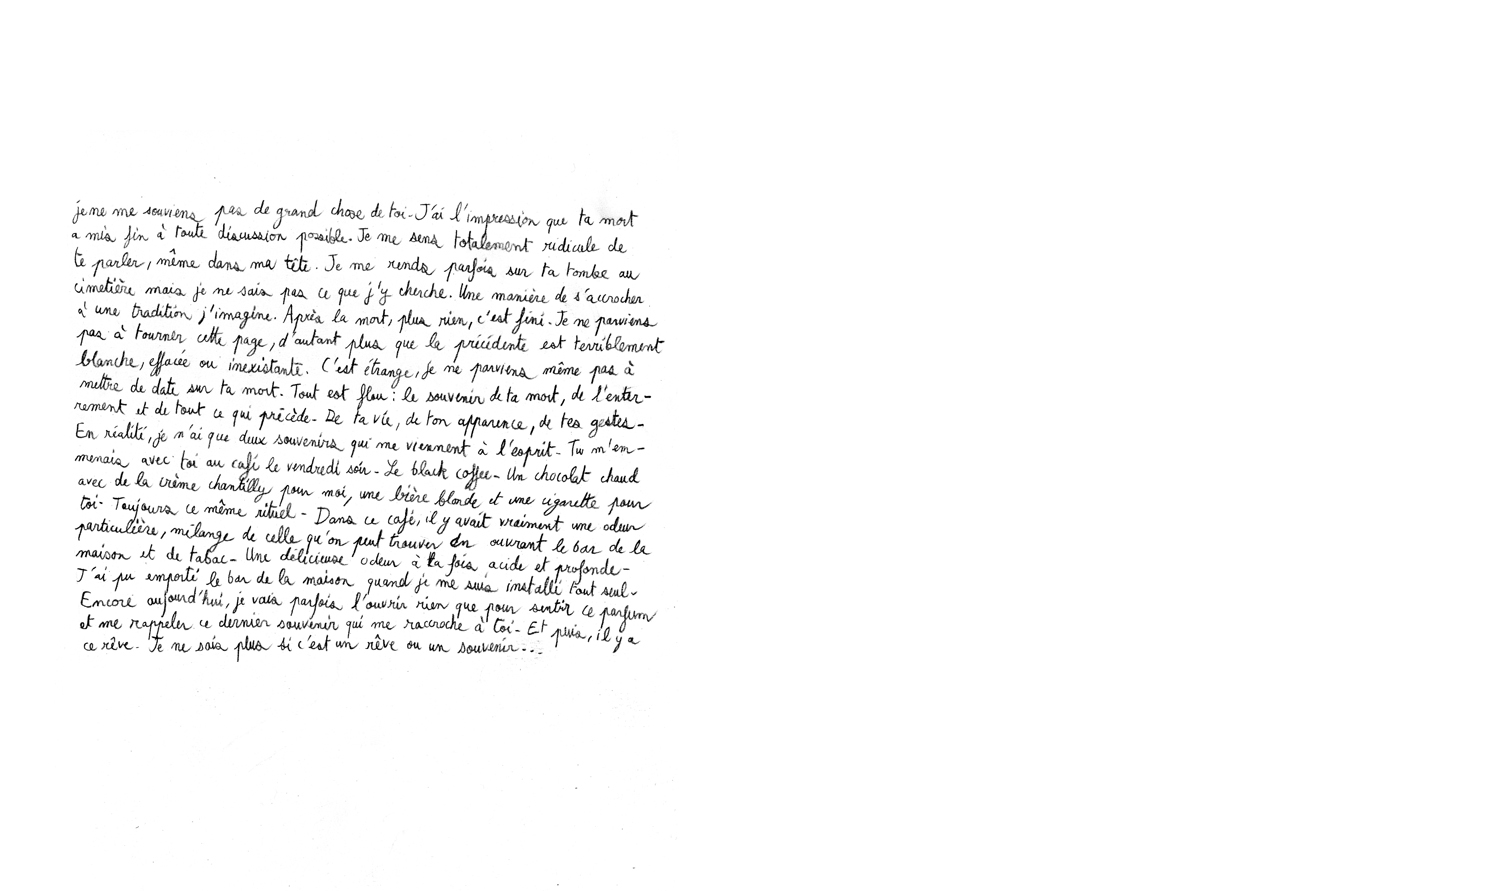 je ne me souviens pas de grand chose de toi - J'ai l'impression que ta mort
a mis fin à toute discussion possible. Je me sens totalement ridicule de
te parler, même dans ma tête. Je me rends parfois sur ta tombe au
cimetière mais je ne sais pas ce que j'y cherche. Une manière de s'accrocher
à une tradition j'imagine. Après la mort, plus rien, c'est fini. Je ne parviens
pas à tourner cette page, d'autant plus que la précédente est terriblement
blanche, effacée ou inexistante. C'est étrange, je ne parviens même pas à
mettre de date sur ta mort. Tout est flou : le souvenir de ta mort, de l'enter-
rement et de tout ce qui précède - De ta vie, de ton apparence, de tes gestes -
En réalité, je n'ai que deux souvenirs qui me viennent à l'esprit - Tu m'em-
menais avec toi au café le vendredi soir - Le black coffee - Un chocolat chaud
avec de la crème chantilly pour moi, une bière blonde et une cigarette pour
toi - Toujours ce même rituel - Dans ce café, il y avait vraiment une odeur
particulière, mélange de celle qu'on peut trouver en ouvrant le bar de la
maison et de tabac - Une délicieuse odeur à la fois acide et profonde -
J'ai pu emporté le bar de la maison quand je me suis installé tout seul -
Encore aujourd'hui, je vais parfois l'ouvrir rien que pour sentir ce parfum
et me rappeler ce dernier souvenir qui me raccroche à toi - Et puis, il y a
ce rêve. Je ne sais plus si c'est un rêve ou un souvenir...